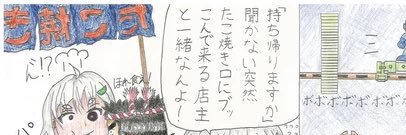 ボボボボボボボボ
「持ち帰りますか」
聞かない突然
たこ焼き口にブッ
こんで来る店主
と一緒なんよー
ほれ食え!
ん!?